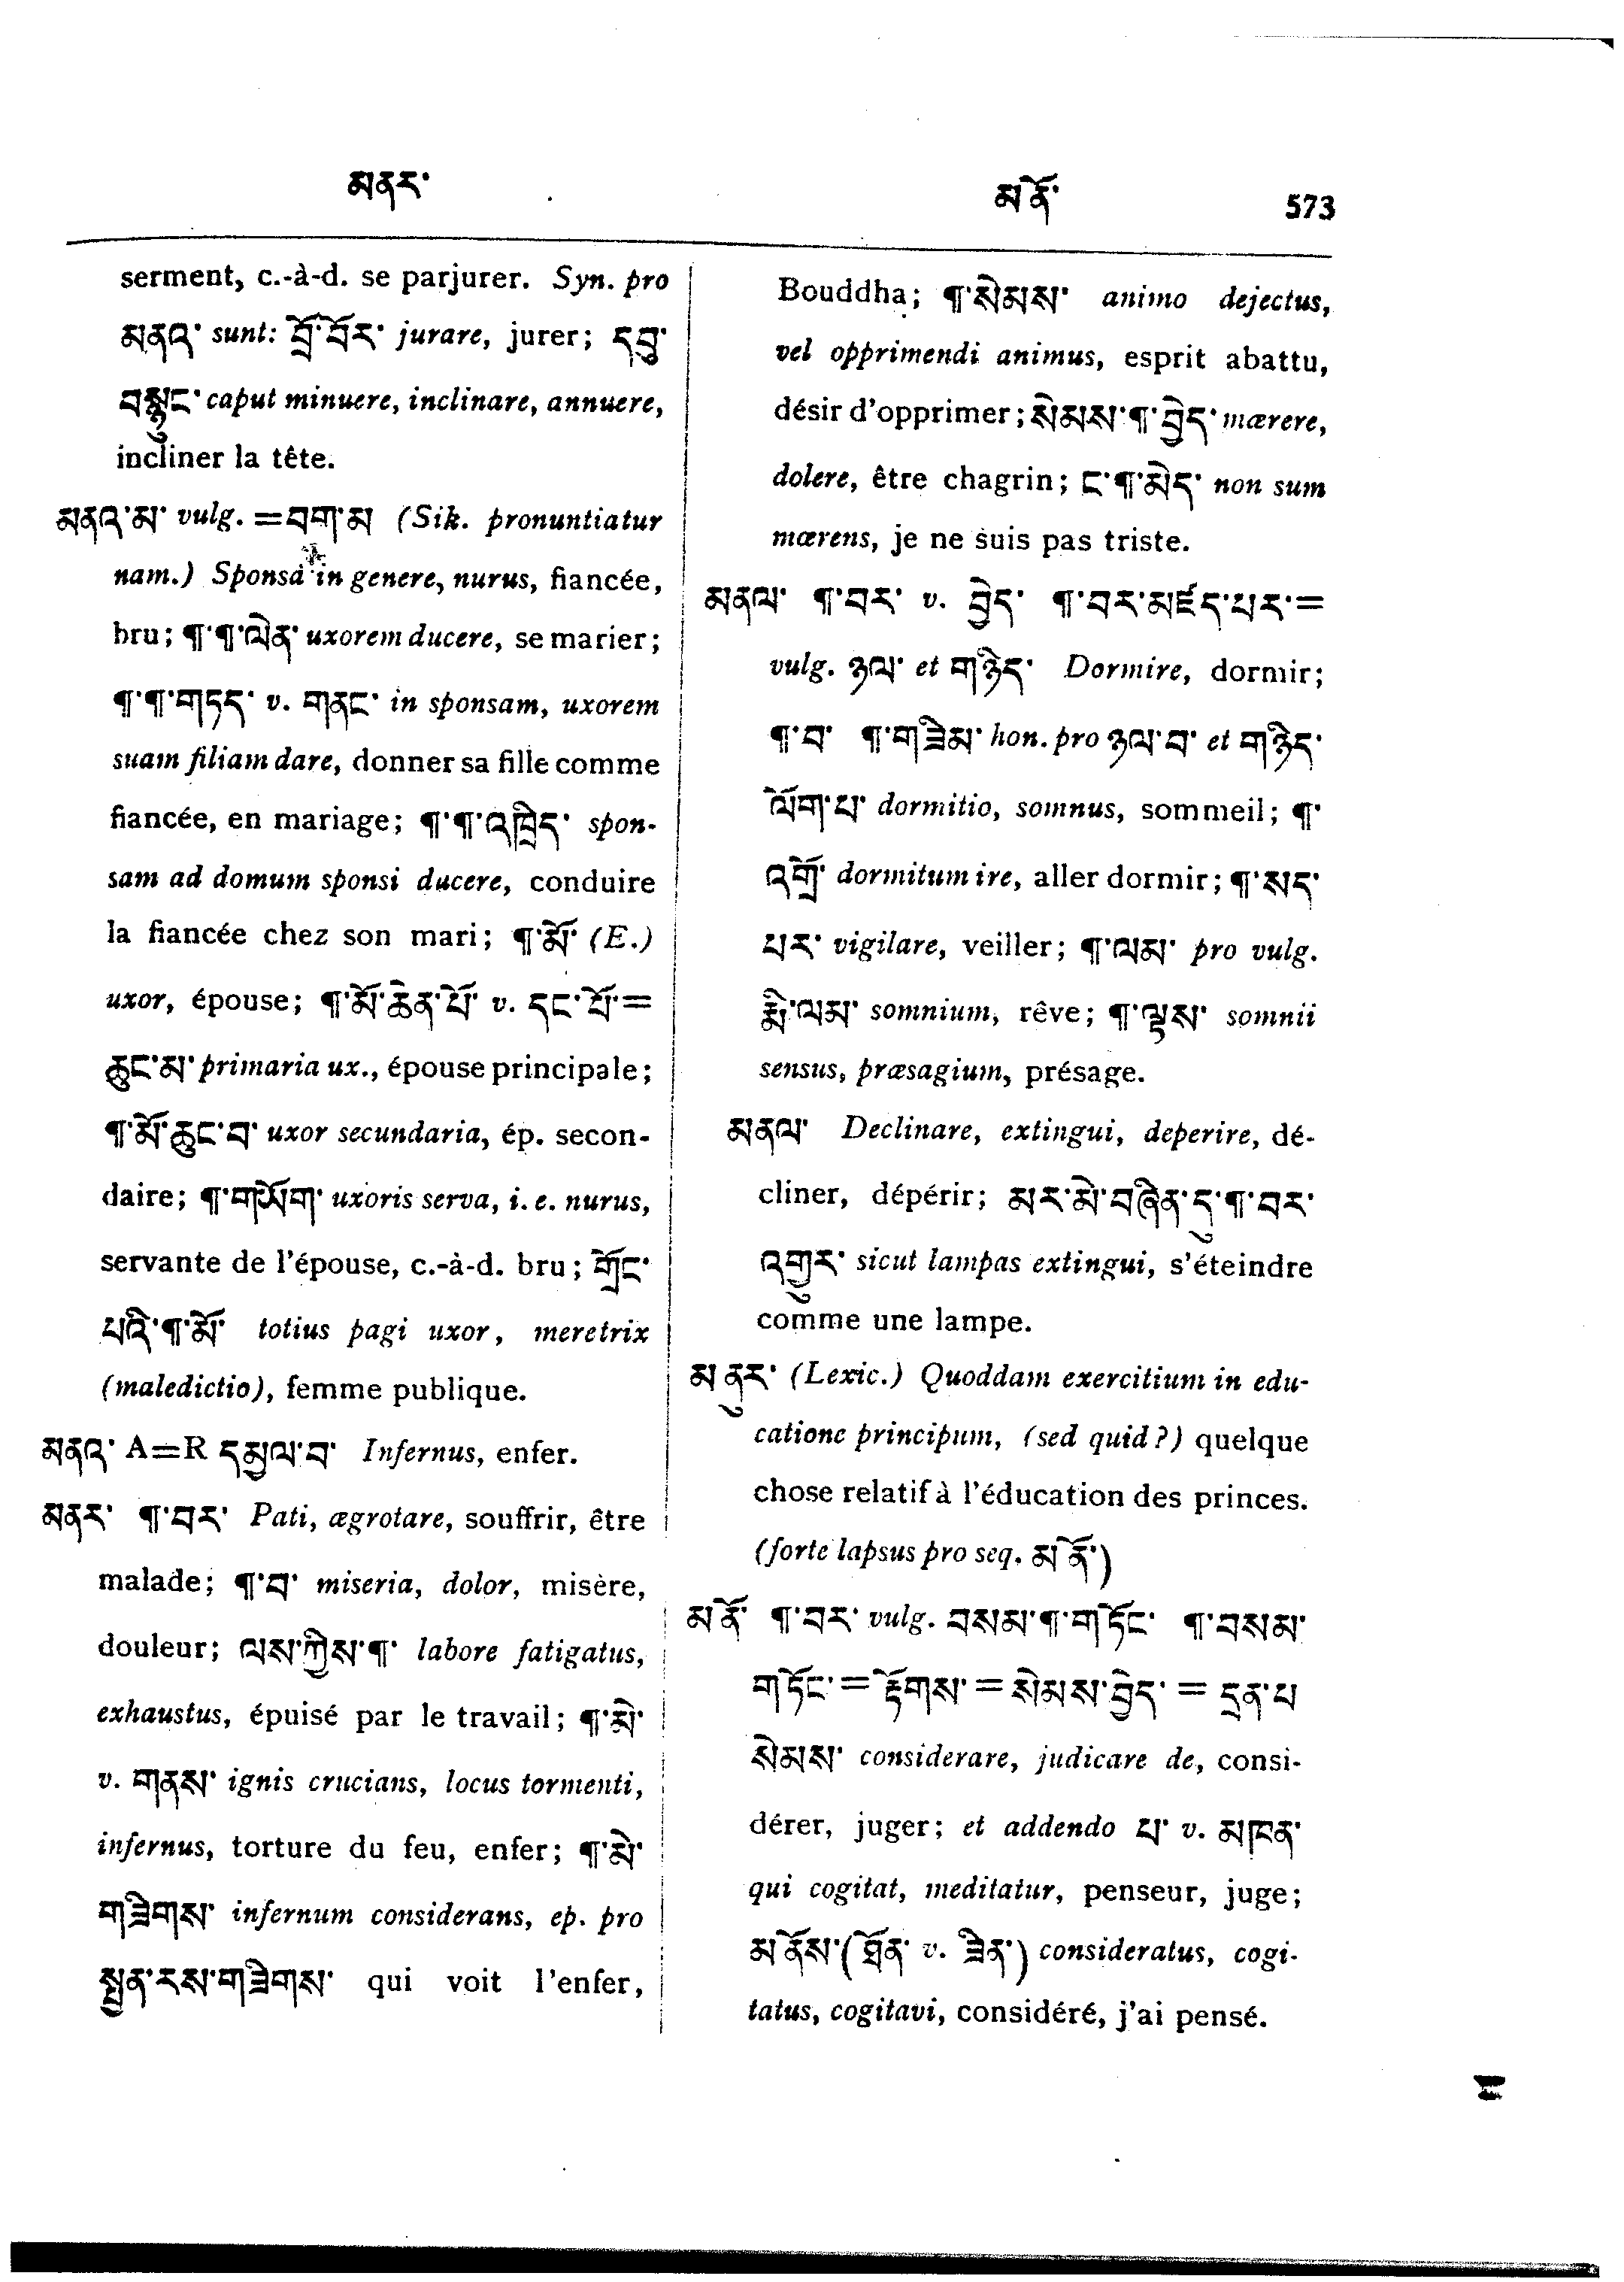 མནར་
མནོ་ 573
serment, c.-à-d. se parjurer. Syn. pro
མནའ་ sunt: བྲོ་བོར་ jurare, jurer; དབུ་
བསྙུང་ caput minuere, inclinare, annuere,
incliner la tête.
མནའ་མ་ vulg. =བག་མ (Sik. pronuntiatur
nam.) Sponsa in genere, nurus, fiancée,
bru; ¶་¶་ལེན་ uxorem ducere, se marier;
¶་¶་གཏད་ v. གནང་ in sponsam, uxorem
suam filiam dare, donner sa fille comme
fiancée, en mariage; ¶་¶་འཁྲིད་ spon-
sam ad domum sponsi ducere, conduire
la fiancée chez son mari; ¶་མོ་ (E.)
uxor, épouse; ¶་མོ་ཆེན་པོ་ v. དང་པོ་=
ཆུང་མ་ primaria ux., épouse principale;
¶་མོ་ཆུང་བ་ uxor secundaria, ép. secon-
daire; ¶་གཡོག་ uxoris serva, i. e. nurus,
servante de l'épouse, c.-à-d. bru; གྲོང་
པའི་¶་མོ་ totius pagi uxor, meretrix
(maledictio), femme publique.
མནའ་ A=R དམྱལ་བ་ Infernus, enfer.
མནར་ ¶་བར་ Pati, ægrotare, souffrir, être
malade; ¶་བ་ miseria, dolor, misère,
douleur; ལས་ཀྱིས་¶་ labore fatigatus,
exhaustus, épuisé par le travail; ¶་མེ་
v. གནས་ ignis crucians, locus tormenti,
infernus, torture du feu, enfer; ¶་མེ་
གཟིགས་ infernum considerans, ep. pro
སྤྱན་རས་གཟིགས་ qui voit l'enfer,
Bouddha; ¶་སེམས་ animo dejectus,
vel opprimendi animus, esprit abattu,
désir d'opprimer; སེམས་¶་བྱེད་ mærere,
dolere, être chagrin; ང་¶་མེད་ non sum
mærens, je ne suis pas triste.
མནལ་ ¶་བར་ v. བྱེད་ ¶་བར་མཛད་པར་=
vulg. ཉལ་ et གཉིད་ Dormire, dormir;
¶་བ་ ¶་གཟིམ་ hon. pro ཉལ་བ་ et གཉིད་
ལོག་པ་ dormitio, somnus, sommeil; ¶་
འགྲོ་ dormitum ire, aller dormir; ¶་སད་
པར་ vigilare, veiller; ¶་ལམ་ pro vulg.
རྨི་ལམ་ somnium, rêve; ¶་ལྟས་ somnii
sensus, præsagium, présage.
མནལ་ Declinare, extingui, deperire, dé-
cliner, dépérir; མར་མེ་བཞིན་དུ་¶་བར་
འགྱུར་ sicut lampas extingui, s'éteindre
comme une lampe.
མནུར་ (Lexic.) Quoddam exercitium in edu-
catione principum, (sed quid?) quelque
chose relatif à l'éducation des princes.
(forte lapsus pro seq. མནོ་)
མནོ་ ¶་བར་ vulg. བསམ་¶་གཏོང་ ¶་བསམ་
གཏོང་ = རྟོགས་ = སེམས་བྱེད་ = དྲན་པ
སེམས་ considerare, judicare de, consi-
dérer, juger; et addendo པ་ v. མཁན་
qui cogitat, meditatur, penseur, juge;
མནོས་ (ཐོན་ v. ཟིན་) consideratus, cogi-
tatus, cogitavi, considéré, j'ai pensé.